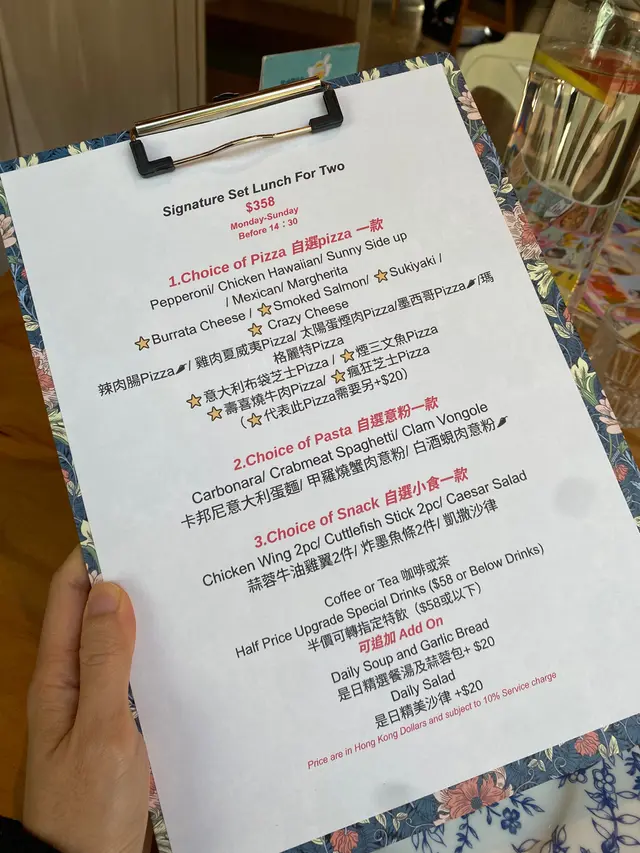 Signature Set Lunch For Two
$358
Monday-Sunday
Before 14：30
1.Choice of Pizza 自選pizza 一款
Pepperoni/ Chicken Hawaiian/ Sunny Side up
/ Mexican/ Margherita
⭐Burrata Cheese / ⭐Smoked Salmon/ ⭐Sukiyaki /
⭐ Crazy Cheese
辣肉腸Pizza🌶/ 雞肉夏威夷Pizza/ 太陽蛋煙肉Pizza/墨西哥Pizza🌶/瑪
格麗特Pizza
⭐意大利布袋芝士Pizza / ⭐煙三文魚Pizza
⭐壽喜燒牛肉Pizza/ ⭐瘋狂芝士Pizza
（⭐代表此Pizza需要另+$20）
2.Choice of Pasta 自選意粉一款
Carbonara/ Crabmeat Spaghetti/ Clam Vongole
卡邦尼意大利蛋麵/ 甲羅燒蟹肉意粉/ 白酒蜆肉意粉🌶
3.Choice of Snack 自選小食一款
Chicken Wing 2pc/ Cuttlefish Stick 2pc/ Caesar Salad
蒜蓉牛油雞翼2件/ 炸墨魚條2件/ 凱撒沙律
Coffee or Tea 咖啡或茶
Half Price Upgrade Special Drinks ($58 or Below Drinks)
半價可轉指定特飲（$58或以下）
可追加 Add On
Daily Soup and Garlic Bread
是日精選餐湯及蒜蓉包+ $20
Daily Salad
是日精美沙律 +$20
Price are in Hong Kong Dollars and subject to 10% Service charge